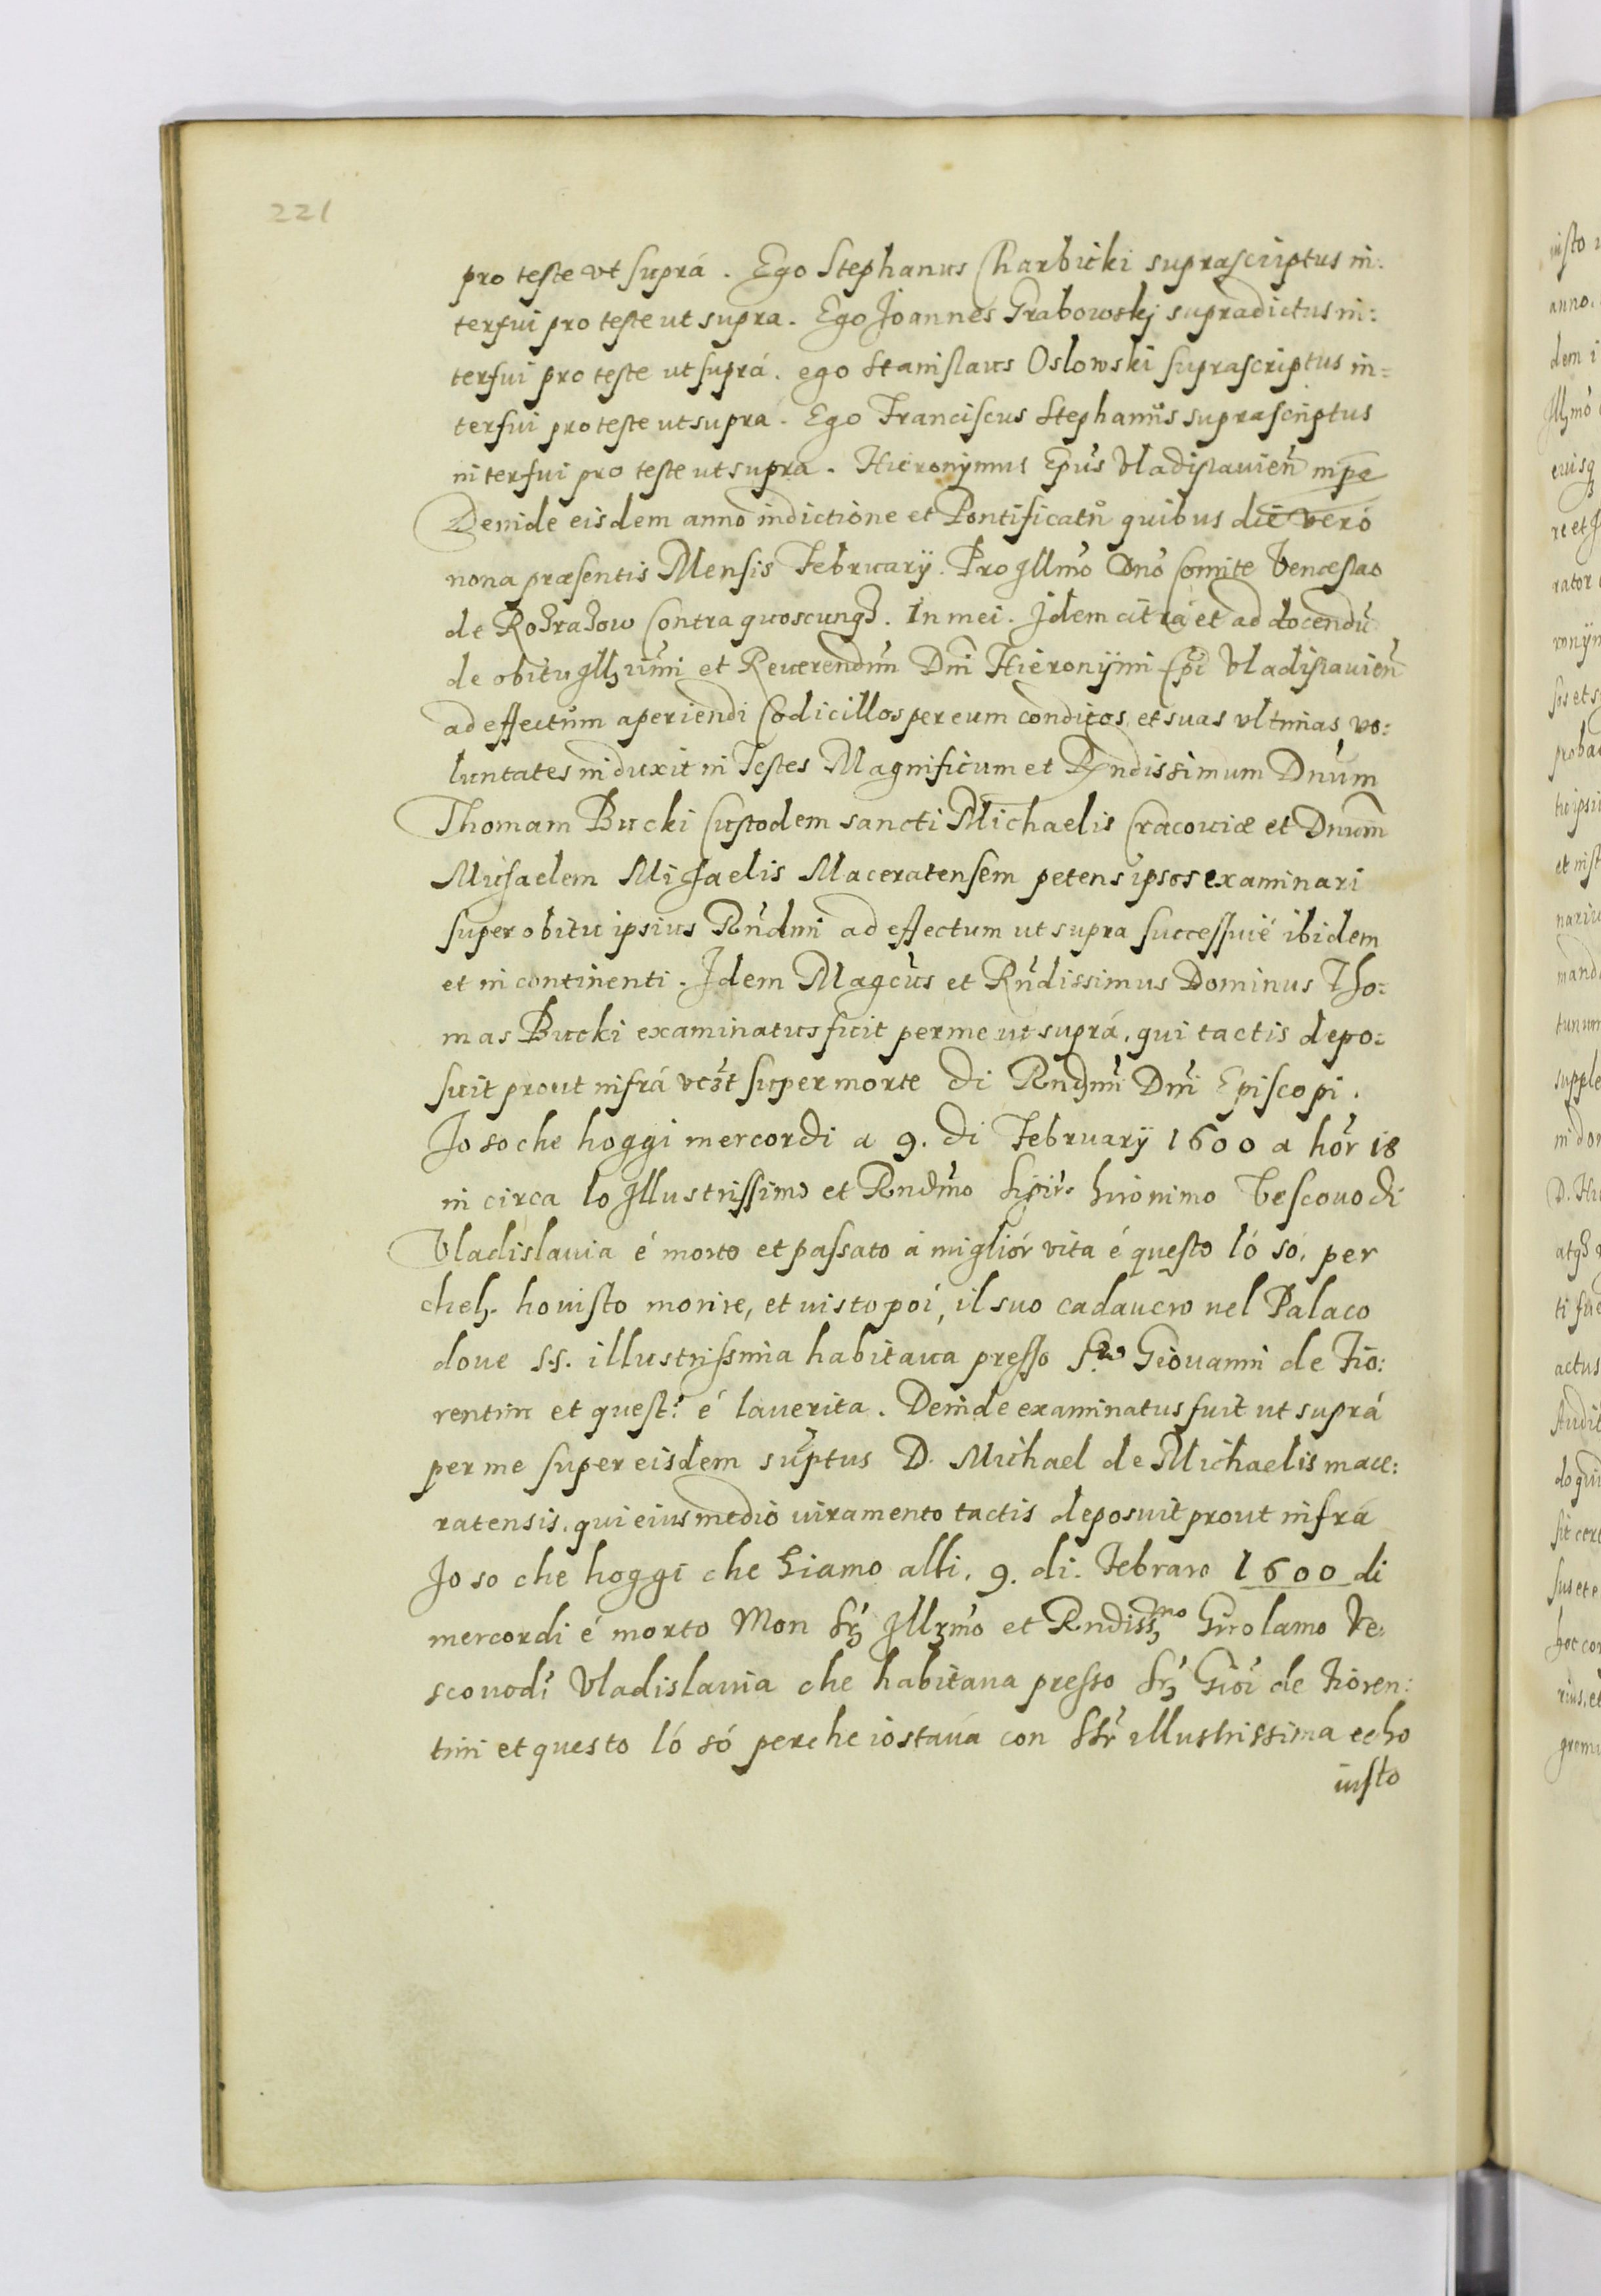 221
pro teste vt suprá. Ego Stephanus Charbicki suprascriptus in:
terfui pro teste ut supra. Ego Joannes Grabowskj supradictus in:
terfui pro teste ut suprá. ego Stanislaus Oslowski suprascriptus in=
terfui pro teste ut supra. Ego Franciscus Stephanus suprascriptus
interfui pro teste ut supra. Hieronymus Epus Vladislauien mpe
Deinde eisdem anno indictione et Pontificatu quibus die veró
nona præsentis Mensis February. Pro Jllmo Dno Comite Venceslao
de Rozrazow Contra quoscunqz. In mei. Jdem citra et ad docendu
de obitu Jllzrimi et Reuerendim Dni Hieronymi Epi Vladislauien
ad effectum aperiendi Codicillos per eum conditos, et suas vltimas vo:
luntates induxit in Testes Magnificum et Rndissimum Dnum
Thomam Bucki Custodem sancti Michaelis Cracouiæ et Dnum
Michaelem Michaelis Maceratensem petens ipsos examinari
super obitu ipsius Rndmi ad effectum ut supra successiué ibidem
et in continenti. Jdem Magcus et Rndissimus Dominus Tho:
mas Bucki examinatus fuit per me ut suprá, qui tactis depo:
suit prout infrá vezt super morte di Rndmi Dni Episcopi.
Jo so che hoggi mercordi a 9. di February 1600 a hor 18
in circa lo Jllustrissimo et Rndmo hironimo Vescouo di
Vladislauia é morto et passato á migliór vita é questo ló só, per
chelz. ho uisto morire, et uisto poi, il suo cadauero nel Palaco
doue s.s. illustrissima habitaua presso Giouanni de Fio:
rentini et quest: é la uerita. Deinde examinatus fuit ut suprá
per me super eisdem suptus D. Michael de Michaelis mace:
ratensis, qui eius medio iuramento tactis deposuit prout infrá
Jo so che hoggi che siamo alli. 9. di. Febraro 1600 di
mercordi é morto Mon Srz Jllzmo et Rndissz mo Girolamo Ve:
scouo di Vladislauia che habitaua presso Srz Gioi de Fioren:
tini et questo ló só perche io staua con SSr illustrissima e cho
uisto